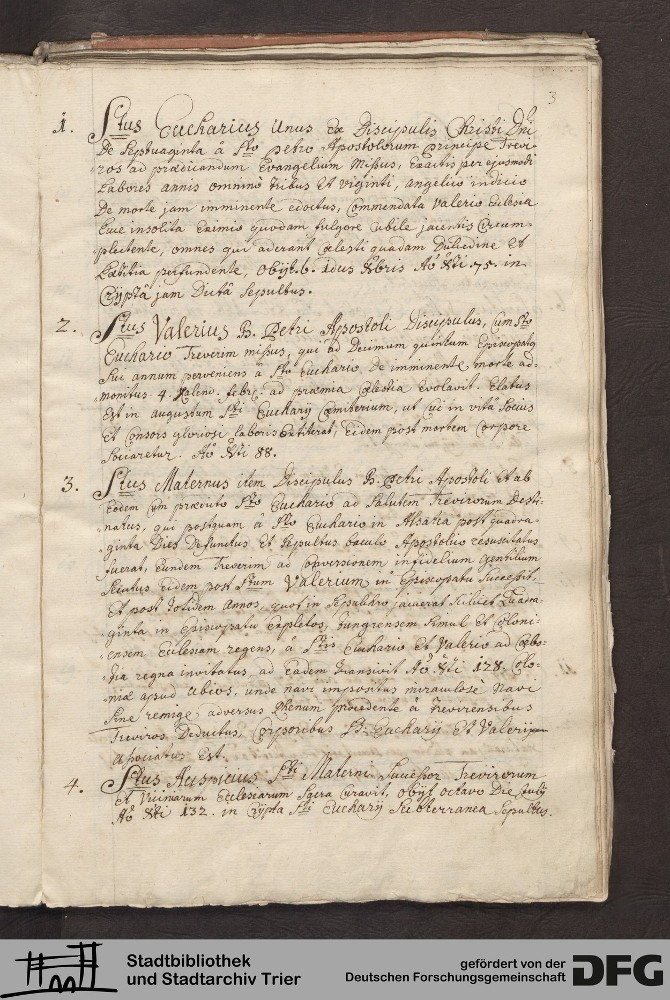 3
1. Stus Eucharius unus ex Discipulis Christi Dni
De Septuaginta â Sto petro Apostolorum principe Trevi-
ros ad prædicandum Evangelium Missus, Exactis per ejusmodi
Labores annis omnino tribus et viginti, angelico indicio
De morte jam imminente edoctus, Commendata Valerio Eclesia
luce insolita Eximio quodam fulgore Cubile jacentis Circum-
plectente, omnes qui aderant cælesti quadam Dulcedine et
Lætitia perfundente, obijt 6. idus Xbris Aõ Xti 75. in
Cryptâ jam Dictâ Sepultus.
2. Stus Valerius B. Petri Apostoli Discipulus, Cum Sto
Euchario Treverim missus, qui ad Decimum quintum Episcopatq
Sui annum perveniens â Sto Euchario de imminente morte ad-
monitus 4. Kalend. febr: ad præmia Cælestia Evolavit. Elatus
Est in augustum Sti Eucharij Cæmiterium, ut Cui in vitâ Socius
et Consors gloriosi laboris Extiterat, Eidem post mortem Corpore
Sociaretur. Aõ Xti 88.
3. Stus Maternus item Discipulus B. Petri Apostoli et ab
Eodem cum præcuto Sto Euchario ad Salutem Trevirorum Desti-
natus, qui postquam â Sto Euchario in Alsatia post quadra-
ginta Dies Defunctus et Sepultus baculo Apostolico resuscitatus
fuerat, Eundem Treverim ad Conversionem infidelium gentilium
Secutus eidem post Stum Valerium in Episcopatu Successit,
Et post totidem annos, quot in Sepulchro jacuerat Scilicet Quadra-
ginta in Episcopatu Expletos, Tungrensem Simul et Coloni-
ensem Eclesiam regens, â Stis Euchario et Valerio ad Cæle-
stia regna invitatus ad Eadem transivit Aõ Xti 128. Colo-
niæ apud Ubios, unde navi impositus miraculosè Navi
Sine remige adversus Rhenum procedente â Trevirensibus
Treviros Deductus, Corporibus SS. Eucharij Et Valerij
associatus Est.
4. Stus Auspicius Sti Materni Successor Trevirorum
et Vicinarum Eclesiarum Sacra Curavit, obijt octavo Die Julij
Aõ Xti 132. in Crypta Sti Eucharij Subterranea Sepultus.
Stadtbibliothek
und Stadtarchiv Trier
gefördert von der
Deutschen Forschungsgemeinschaft
DFG